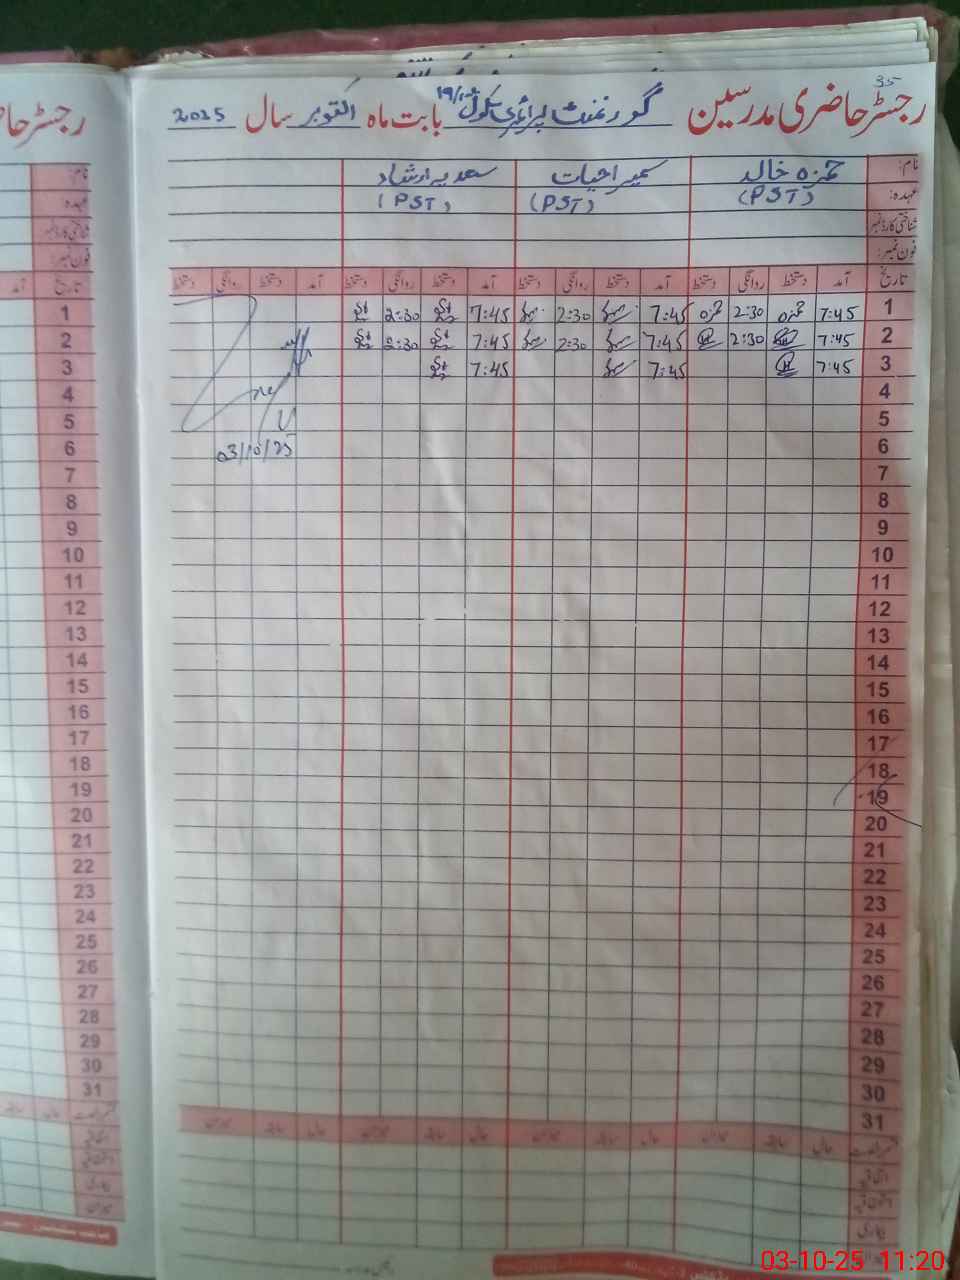 35
رجسٹر حاضری مدرسین گورنمنٹ پرائمری سکول بابت ماہ اکتوبر سال 2025
نام: حمزہ خالد سمیرا حیات سعدیہ ارشاد
عہدہ: (PST) (PST) (PST)
شناختی کارڈ نمبر
فون نمبر:
تاریخ آمد دستخط روانگی دستخط آمد دستخط روانگی دستخط آمد دستخط روانگی دستخط آمد دستخط روانگی دستخط
1 7:45 حمزہ 2:30 حمزہ 7:45 2:30 7:45 2:30
2 7:45 2:30 7:45 2:30 7:45 2:30
3 7:45 7:45 7:45
4
5
6 03/10/25
7
8
9
10
11
12
13
14
15
16
17
18
19
20
21
22
23
24
25
26
27
28
29
30
31
رجسٹر حا
نام:
عہدہ:
شناختی کارڈ نمبر
فون نمبر:
تاریخ آمد
1
2
3
4
5
6
7
8
9
10
11
12
13
14
15
16
17
18
19
20
21
22
23
24
25
26
27
28
29
30
31
03-10-25 11:20